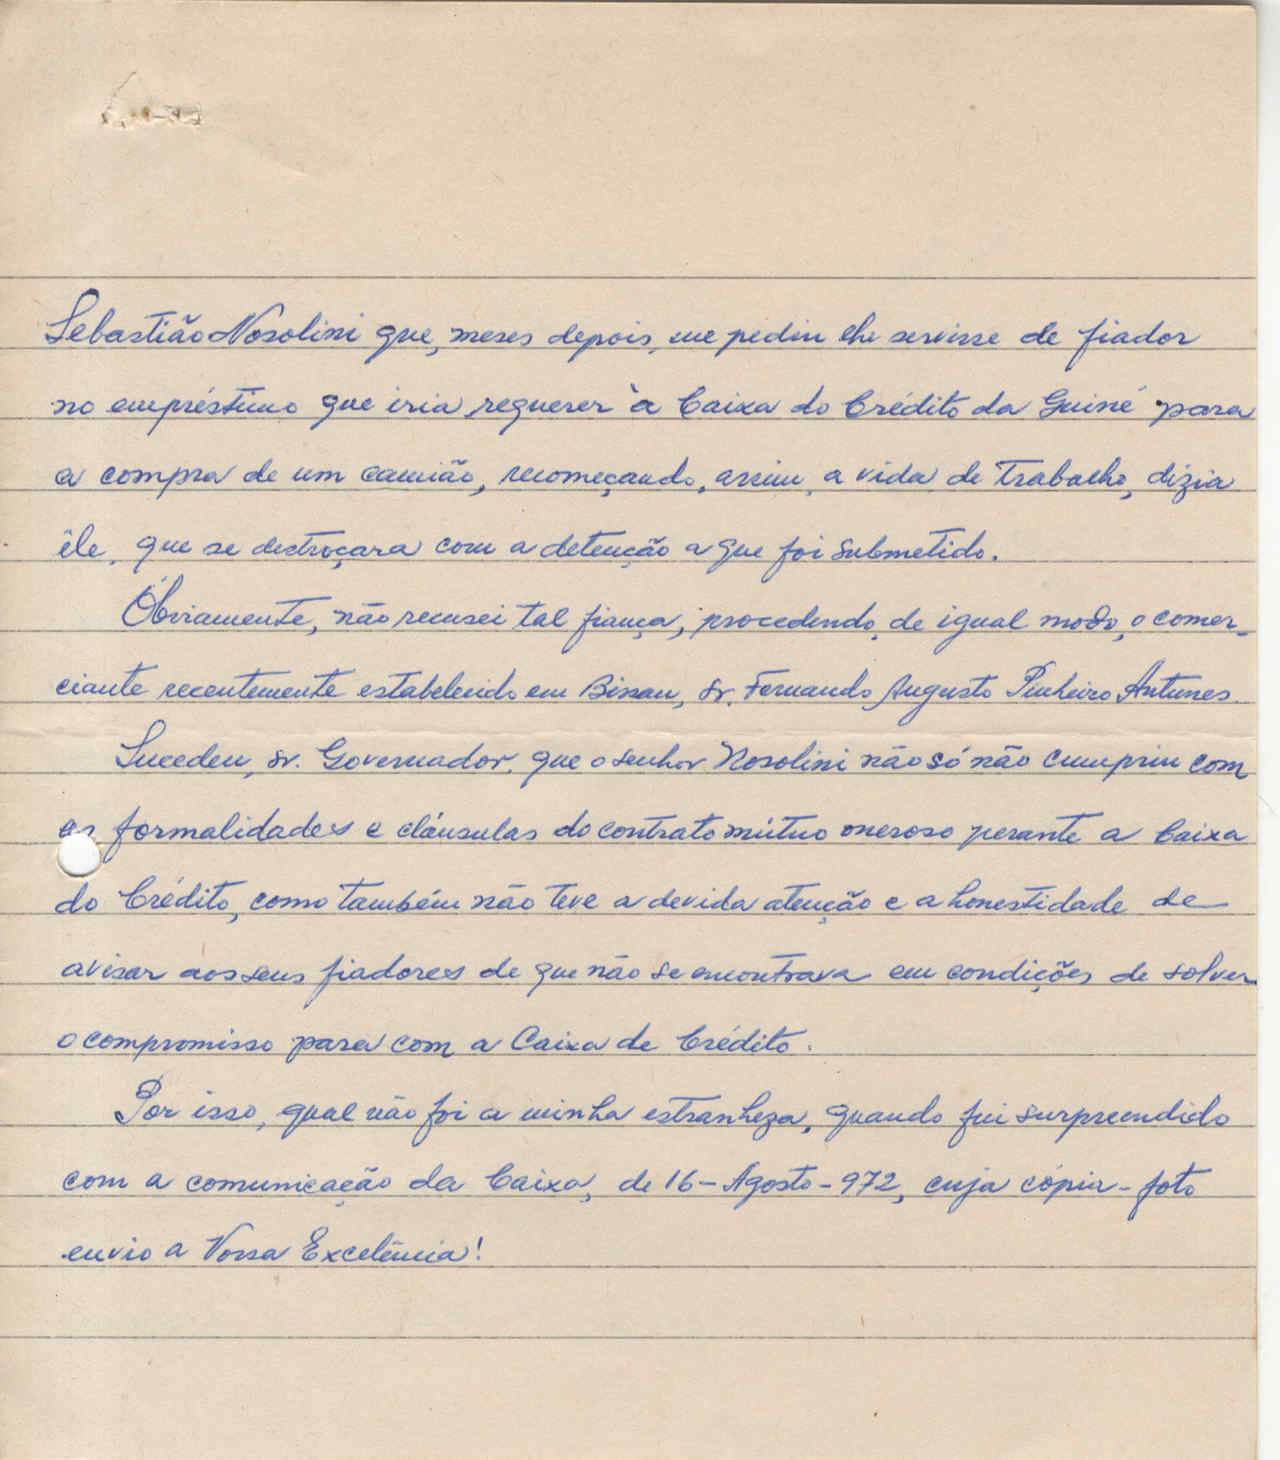 Sebastião Nosolini que, meses depois, me pediu lhe servisse de fiador
no empréstimo que iria requerer à Caixa do Crédito da Guiné para
a compra de um camião, recomeçando, assim, a vida de trabalho, dizia
êle, que se destroçara com a detenção a que foi submetido.
Óbviamente, não recusei tal fiança, procedendo, de igual modo, o comer-
ciante recentemente estabelecido em Bissau, sr. Fernando Augusto Pinheiro Antunes.
Sucedeu, sr. Governador, que o senhor Nosolini não só não cumpriu com
as formalidades e cláusulas do contrato mútuo oneroso perante a Caixa
do Crédito, como também não teve a devida atenção e a honestidade de
avisar aos seus fiadores de que não se encontrava em condições de solver
o compromisso para com a Caixa de Crédito.
Por isso, qual não foi a minha estranheza, quando fui surpreendido
com a comunicação da Caixa, de 16-Agosto-972, cuja cópia-foto
envio a Vossa Excelência!